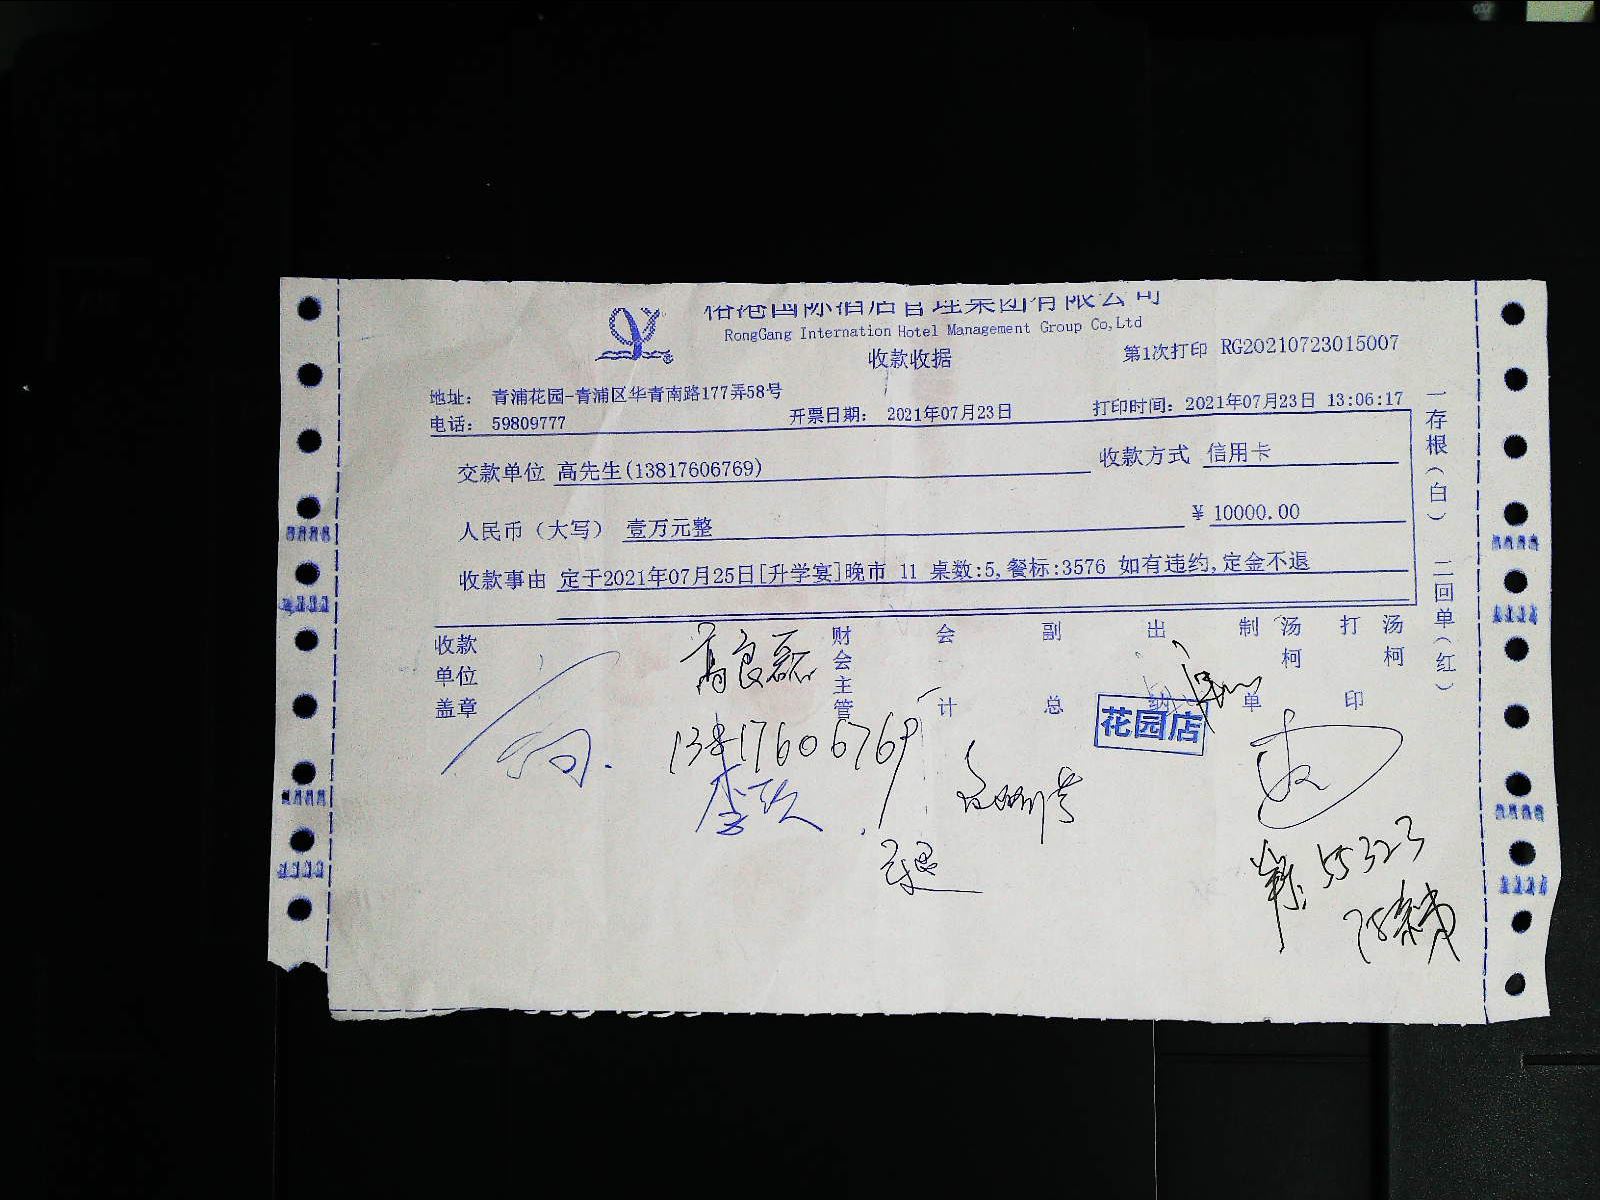 国际酒店管理集团有限公司
RongGang Internation Hotel Management Group Co,Ltd
收款收据
第1次打印 RG20210723015007
地址: 青浦花园-青浦区华青南路177弄58号
电话: 59809777
开票日期: 2021年07月23日
打印时间: 2021年07月23日 13:06:17
交款单位 高先生(13817606769)
收款方式 信用卡
人民币（大写） 壹万元整
¥ 10000.00
收款事由 定于2021年07月25日[升学宴]晚市 11 桌数:5,餐标:3576 如有违约,定金不退
一存根(白) 二回单(红)
收款单位盖章
财会主管
会计
副总
出纳
制单
汤柯
打印
汤柯
高良磊
13817606769
花园店
55323